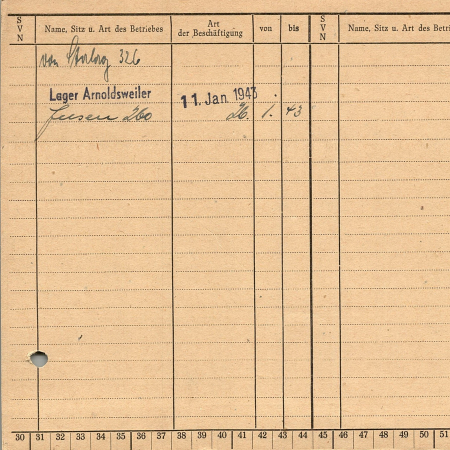 S V N
Name, Sitz u. Art des Betriebes
Art der Beschäftigung
von
bis
S V N
Name, Sitz u. Art des Betri
von Stalag 326
Lager Arnoldsweiler
11. Jan. 1943
260 26. 1. 43
30 31 32 33 34 35 36 37 38 39 40 41 42 43 44 45 46 47 48 49 50 51